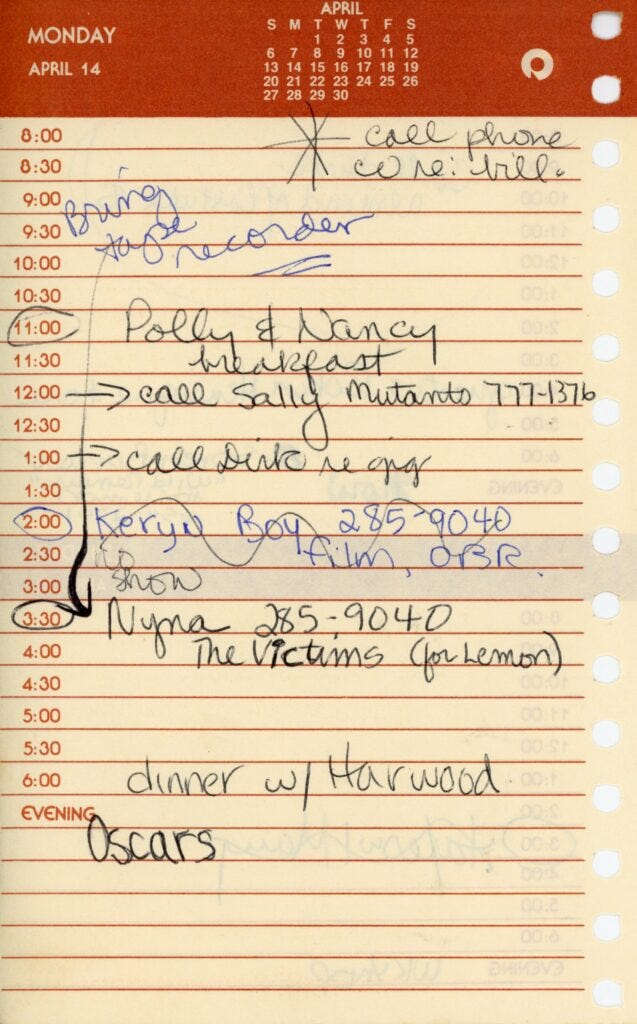 MONDAY
APRIL 14
APRIL
S M T W T F S
1 2 3 4 5
6 7 8 9 10 11 12
13 14 15 16 17 18 19
20 21 22 23 24 25 26
27 28 29 30
8:00 call phone
8:30 co re: bill.
9:00 Bring
9:30 tape recorder
10:00
10:30
11:00 Polly & Nancy
11:30 breakfast
12:00 → call Sally Mutanto 777-1376
12:30
1:00 → call Dirk re gig
1:30
2:00 Keryn Boy 285-9040
2:30 no film, OBR.
3:00 show
3:30 Nyna 285-9040
4:00 The Victims (for Lemon)
4:30
5:00
5:30
6:00 dinner w/ Harwood
EVENING
Oscars